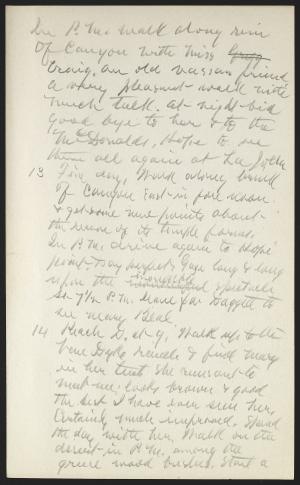 In P.M. walk along rim
of Canyon with Miss
Craig, an old Vassar friend,
a very pleasant walk with
much talk. At night bid
good bye to her & to the
McDonalds, hope to see
them all again at La Jolla
13 Fine day, Walk along brink
of Canyon East in fore noon
& get some new points about
the reason of its temple forms.
In P.M. drive again to Hopi
point & gaze long & long
upon the spectacle
At 7 1/2 P.M. leave for Daggett to
see Mary Beal.
14 Reach D. at 9, Walk up to the
Van Dyke ranch & find Mary
in her tent She runs out to
meet me: looks brown & good
the best I have ever seen her,
Certainly much improved. Spend
the day with her. Walk on the
desert in P.M. among the
grease wood bushes, Start a